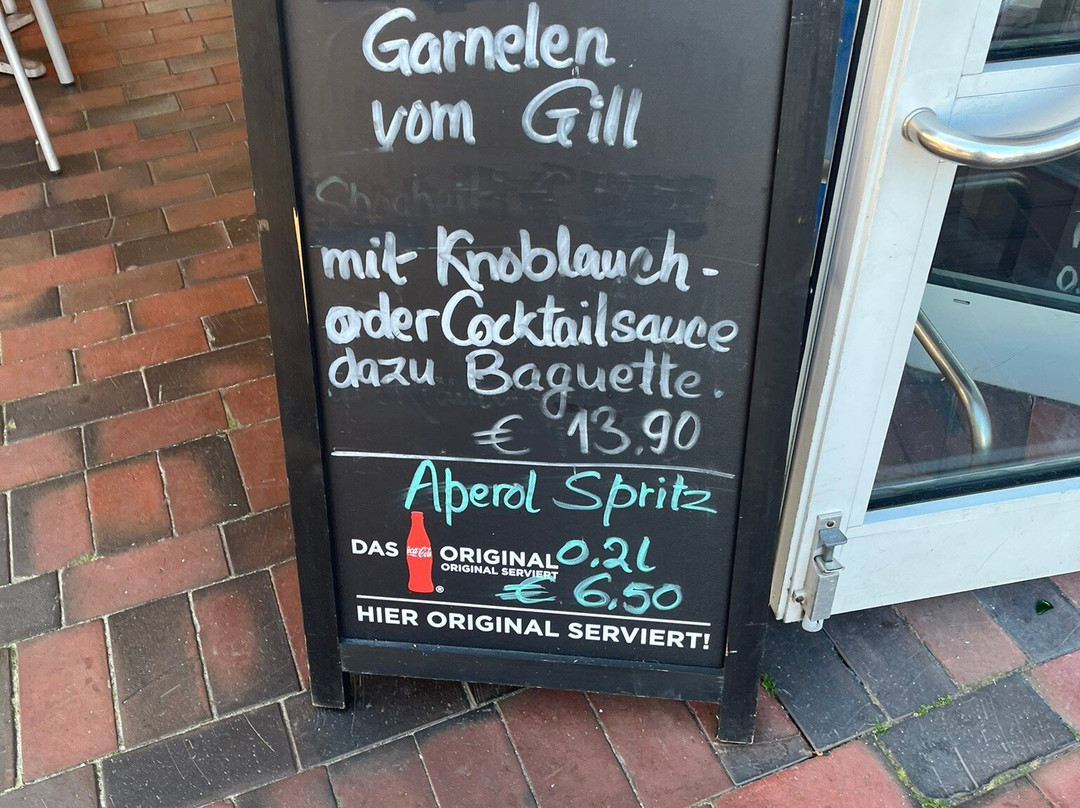 Garnelen
vom Gill
mit Knoblauch-
oder Cocktailsauce
dazu Baguette.
€ 13,90
Aperol Spritz
0.2l
€ 6,50
DAS Coca-Cola ORIGINAL
ORIGINAL SERVIERT
HIER ORIGINAL SERVIERT!